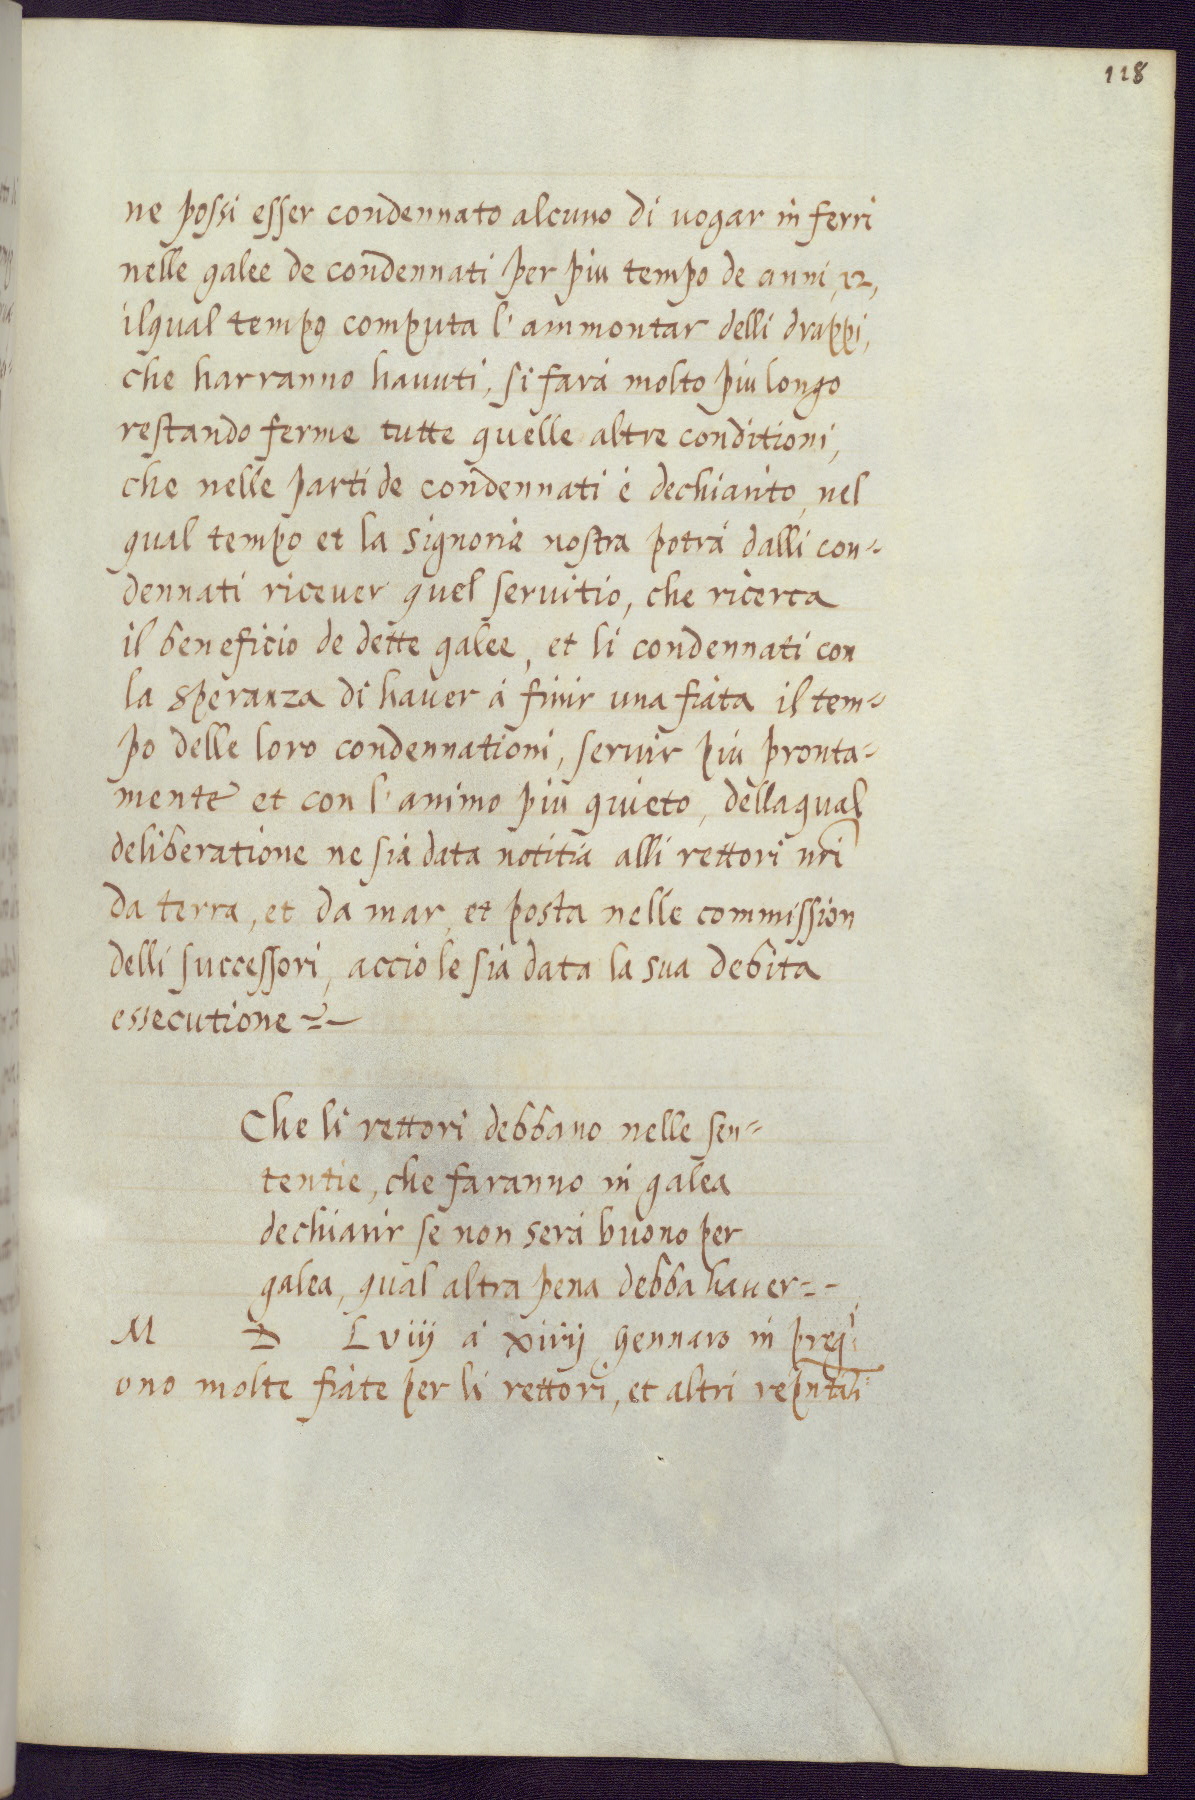 118
ne possi esser condennato alcuno di uogar in ferri
nelle galee de condennati per piu tempo de anni, 12,
ilqual tempo computa l'ammontar delli drappi,
che harranno hauuti, si fará molto piu longo
restando ferme tutte quelle altre conditioni,
che nelle parti de condennati é dechiarito, nel
qual tempo et la signoria nostra potrá dalli con=
dennati riceuer quel seruitio, che ricerca
il beneficio de dette galee, et li condennati con
la speranza di hauer á finir una fiata il tem=
po delle loro condennationi, seruir piú pronta=
mente et con l'animo piu quieto, dellaqual
deliberatione ne sia data notitia alli rettori nri
da terra, et da mar, et posta nelle commission
delli successori, accio le sia data la sua debita
essecutione
Che li rettori debbano nelle sen=
tentie, che faranno in galea
dechiarir se non será buono per
galea, qual altra pena debba hauer
M D Lviij á xiiij Gennaro in preg:
ono molte fiate per li rettori, et altri repntãti